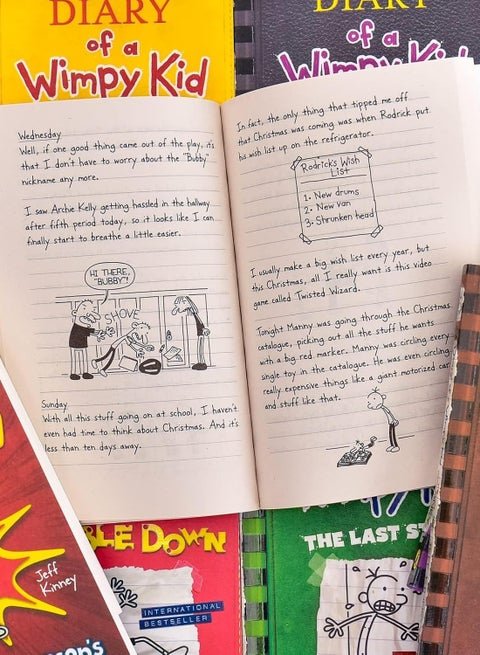 DIARY
of a
Wimpy Kid
DIARY
of a
Wimpy Kid
Wednesday
Well, if one good thing came out of the play, it's
that I don't have to worry about the "Bubby"
nickname any more.
I saw Archie Kelly getting hassled in the hallway
after fifth period today, so it looks like I can
finally start to breathe a little easier.
HI THERE,
"BUBBY"!
SHOVE
Sunday
With all this stuff going on at school, I haven't
even had time to think about Christmas. And it's
less than ten days away.
In fact, the only thing that tipped me off
that Christmas was coming was when Rodrick put
his wish list up on the refrigerator.
Rodrick's Wish
List
1. New drums
2. New van
3. Shrunken head
I usually make a big wish list every year, but
this Christmas, all I really want is this video
game called Twisted Wizard.
Tonight Manny was going through the Christmas
catalogue, picking out all the stuff he wants
with a big red marker. Manny was circling every
single toy in the catalogue. He was even circling
really expensive things like a giant motorized car
and stuff like that.
BLE DOWN
INTERNATIONAL
BESTSELLER
THE LAST ST
Jeff
Kinney